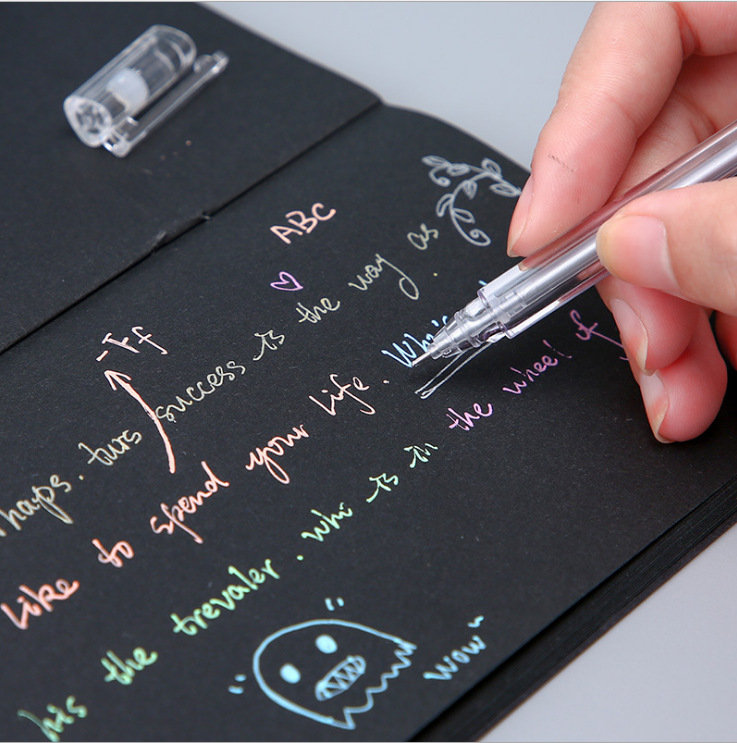 ABC
-Ff
haps. turs success is the way as
Like to spend your life. Who
his the trevaler. who is in the wheel of
wow"